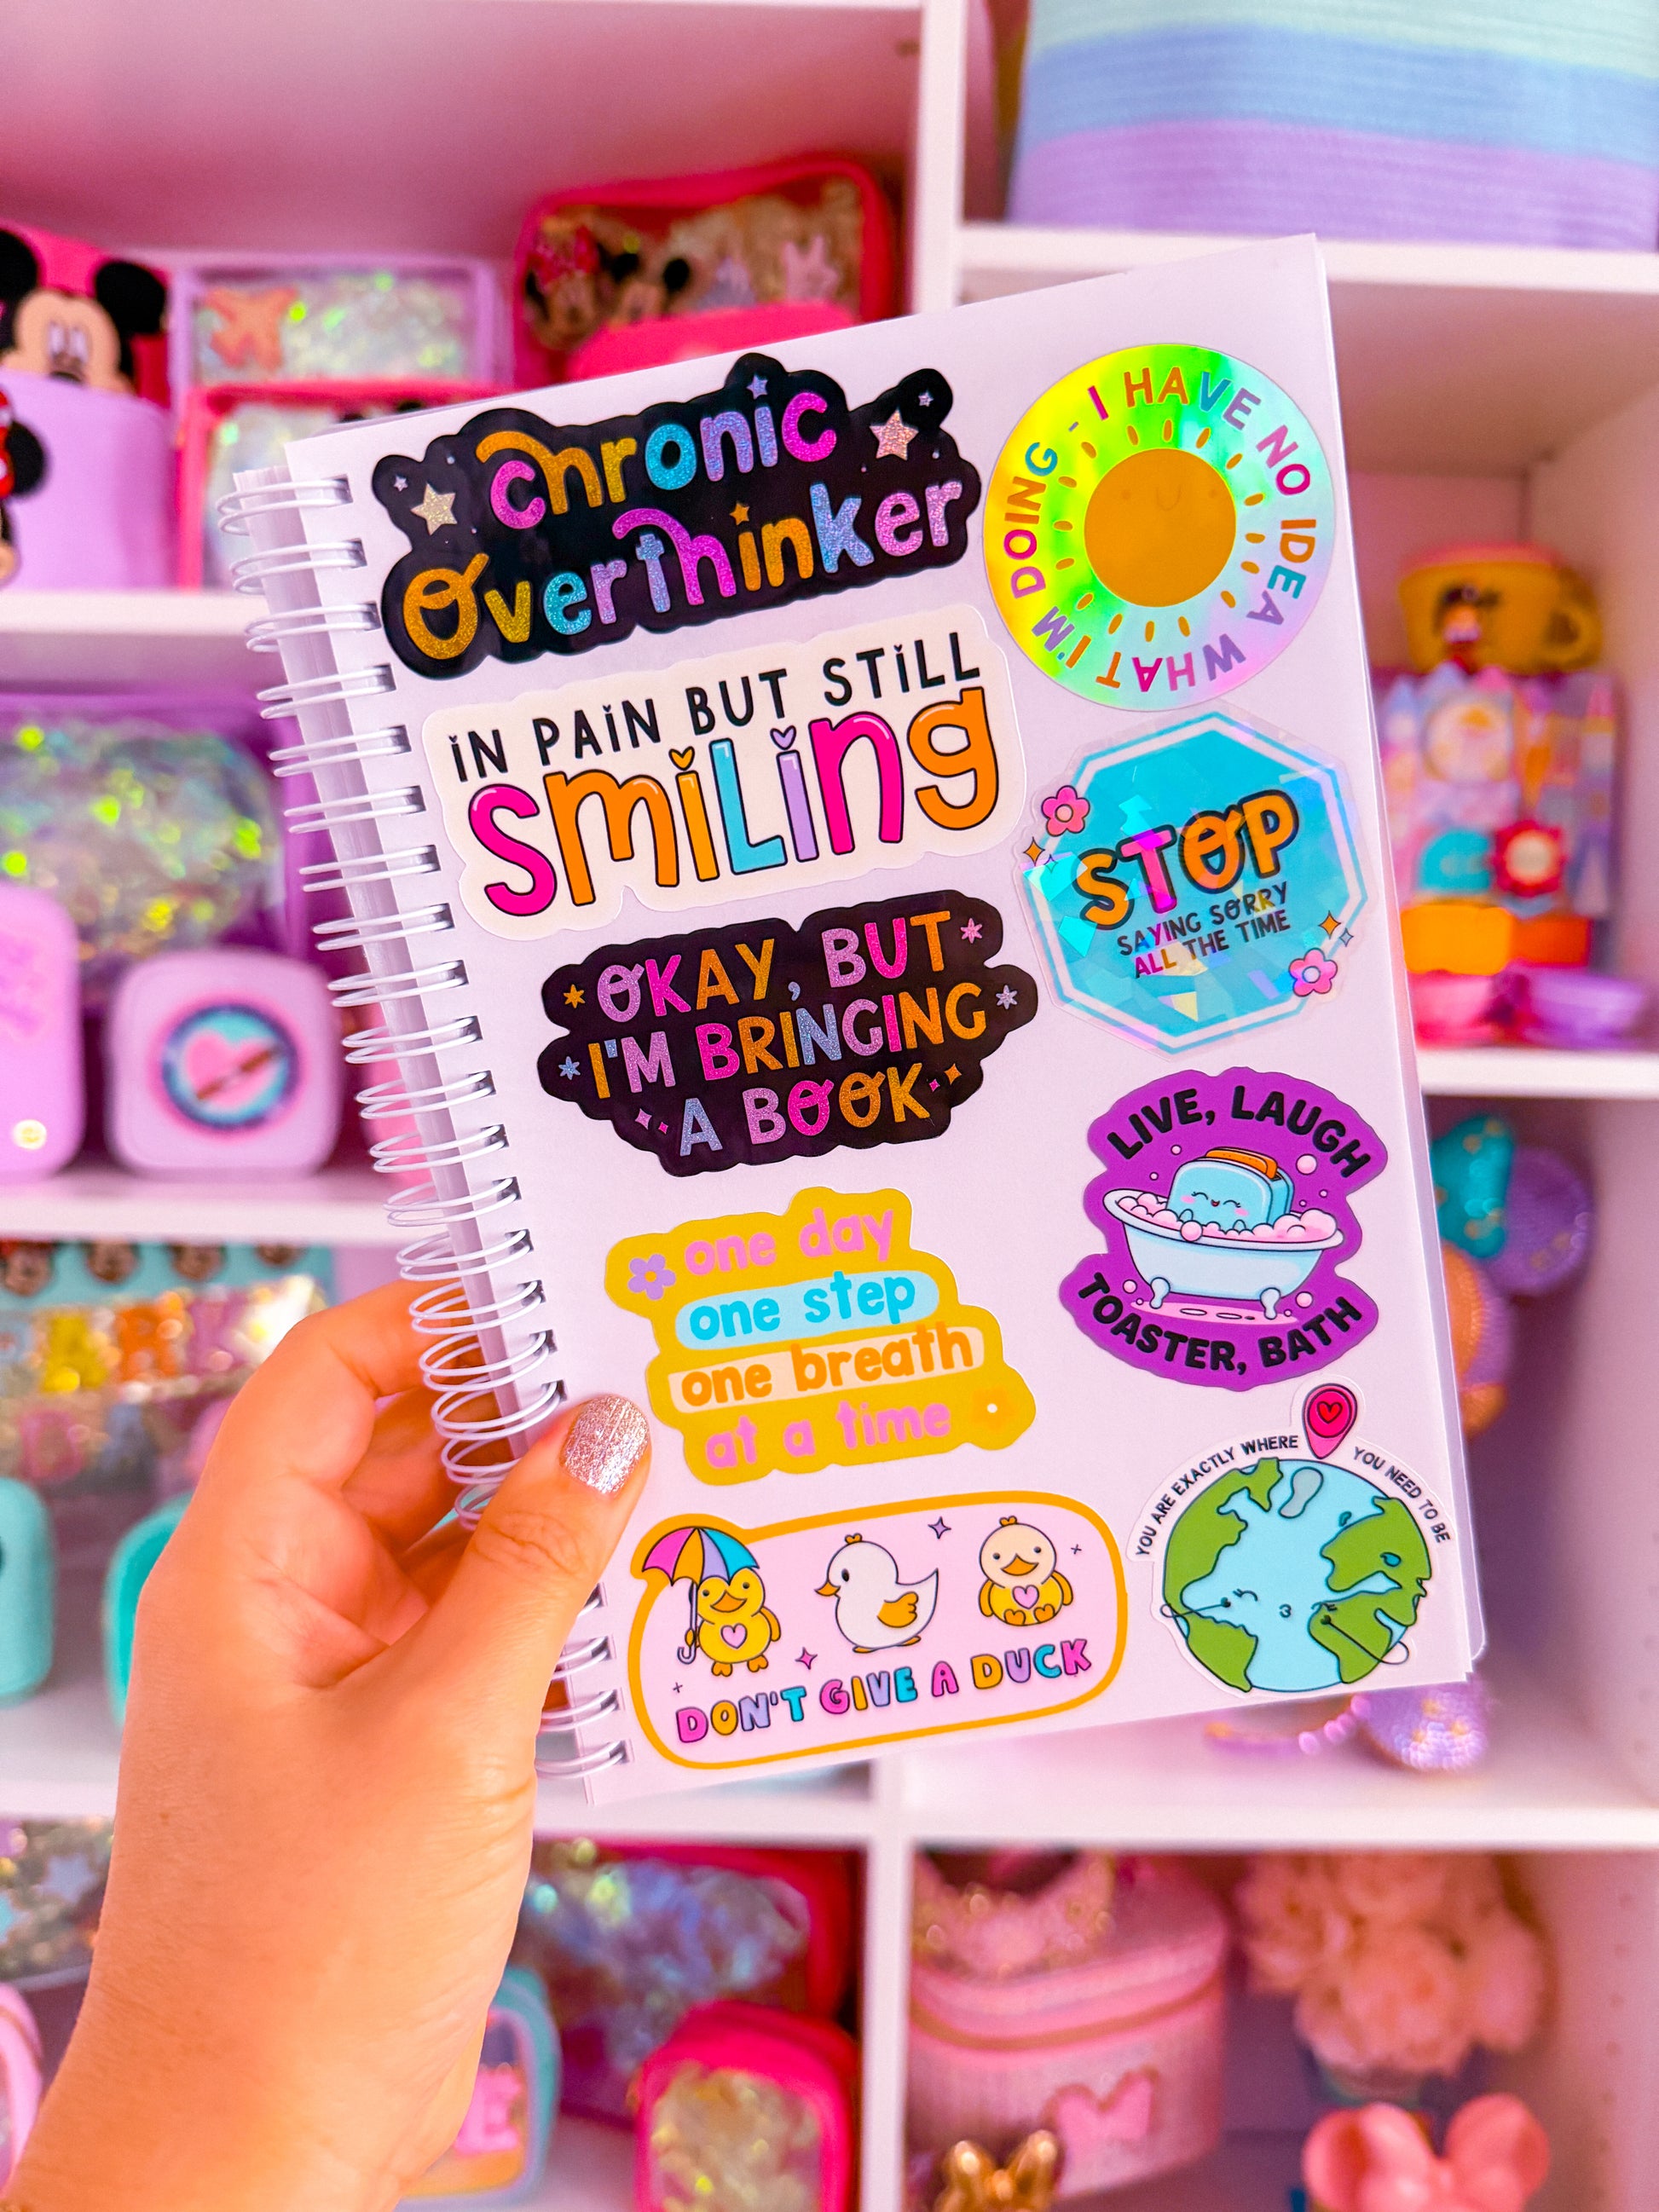 chronic
overthinker
I HAVE NO IDEA WHAT I'M DOING -
IN PAIN BUT STILL
smiling
STOP
SAYING SORRY
ALL THE TIME
OKAY, BUT
I'M BRINGING
A BOOK
LIVE, LAUGH
TOASTER, BATH
one day
one step
one breath
at a time
YOU ARE EXACTLY WHERE YOU NEED TO BE
DON'T GIVE A DUCK